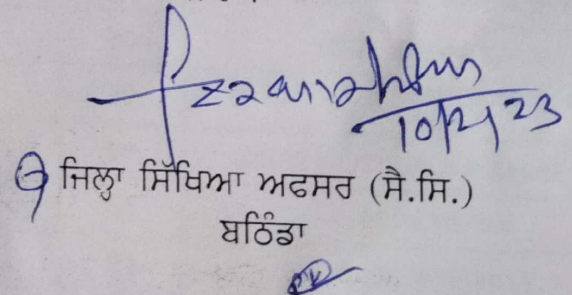 10/2/23
ਜਿਲ੍ਹਾ ਸਿੱਖਿਆ ਅਫਸਰ (ਸੈ.ਸਿ.)
ਬਠਿੰਡਾ